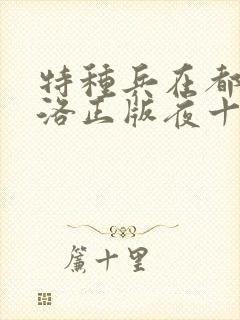 特種兵在都
洛正版夜十
簾十里